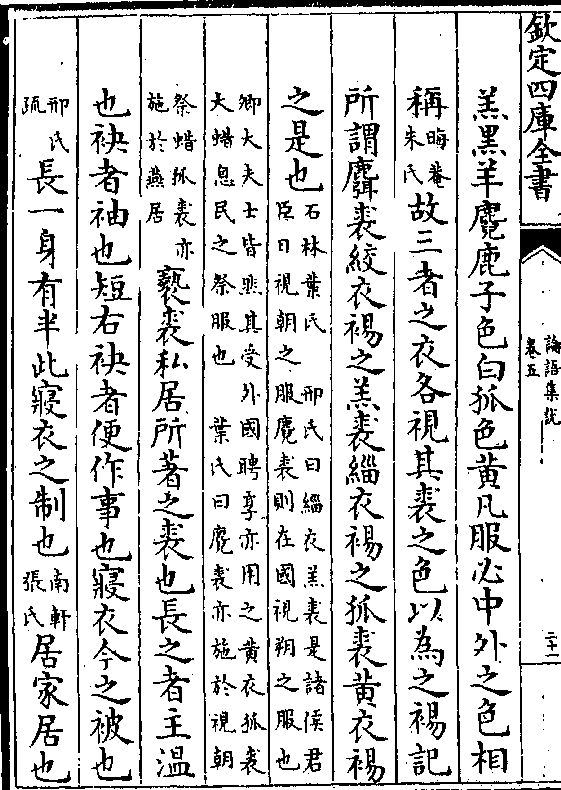 欽定四庫全書
論語集說
卷五
羔黑羊麑鹿子色白狐色黄凡服必中外之色相
稱晦菴朱氏故三者之衣各視其裘之色以為之裼記
所謂麛裘絞衣裼之羔裘緇衣裼之狐裘黄衣裼
之是也石林葉氏 邢氏曰緇衣羔裘是諸侯君
臣日視朝之服麑裘則在國視朔之服也
卿大夫士皆然其受外國聘享亦用之黄衣狐裘
大蜡息民之祭服也 葉氏曰麑裘亦施於視朝
祭蜡狐裘亦施於燕居褻裘私居所著之裘也長之者主温
也袂者袖也短右袂者便作事也寢衣今之被也
邢氏疏長一身有半此寢衣之制也南軒張氏居家居也